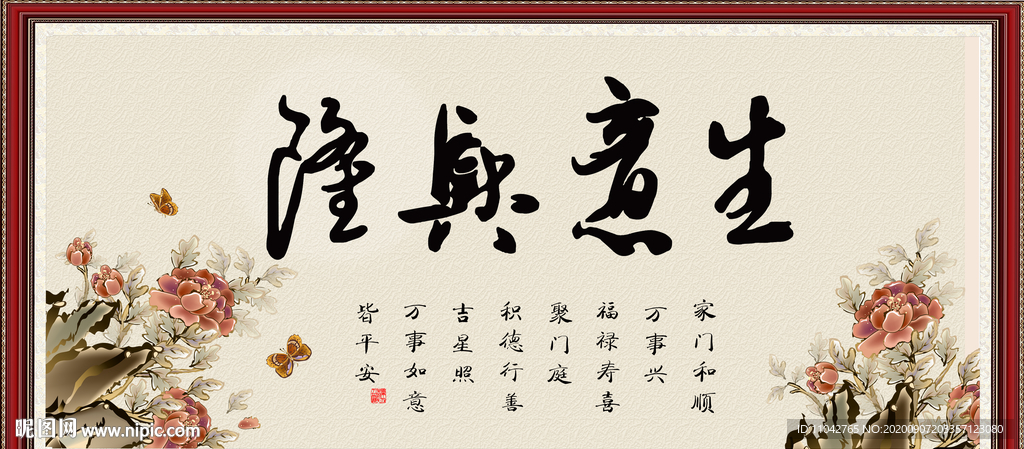 生意興隆
家门和顺
万事兴
福禄寿喜
聚门庭
积德行善
吉星照
万事如意
皆平安
昵图网 www.nipic.com
ID:11042765 NO:20200907209357123080